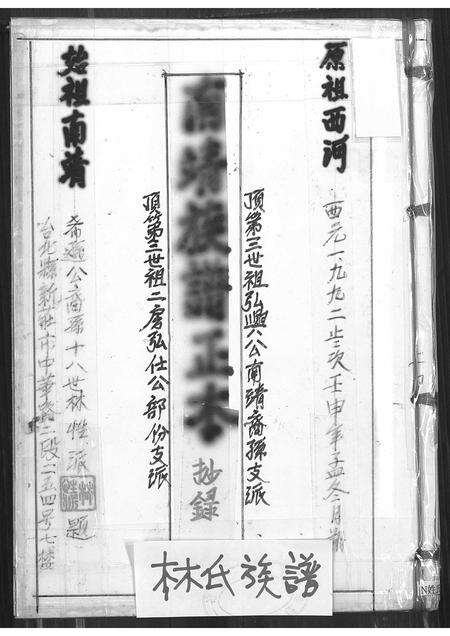 原祖西河
西元一九九二年歲次壬申年孟冬月
頂第三世祖弘興公南靖裔孫支派
南靖族譜正本
抄錄
頂第三世祖二房弘仕公部份支派
始祖南靖
公裔第十八世林惟派題
台北縣新莊市中華路二段二五四号七樓
林氏族譜
N姓